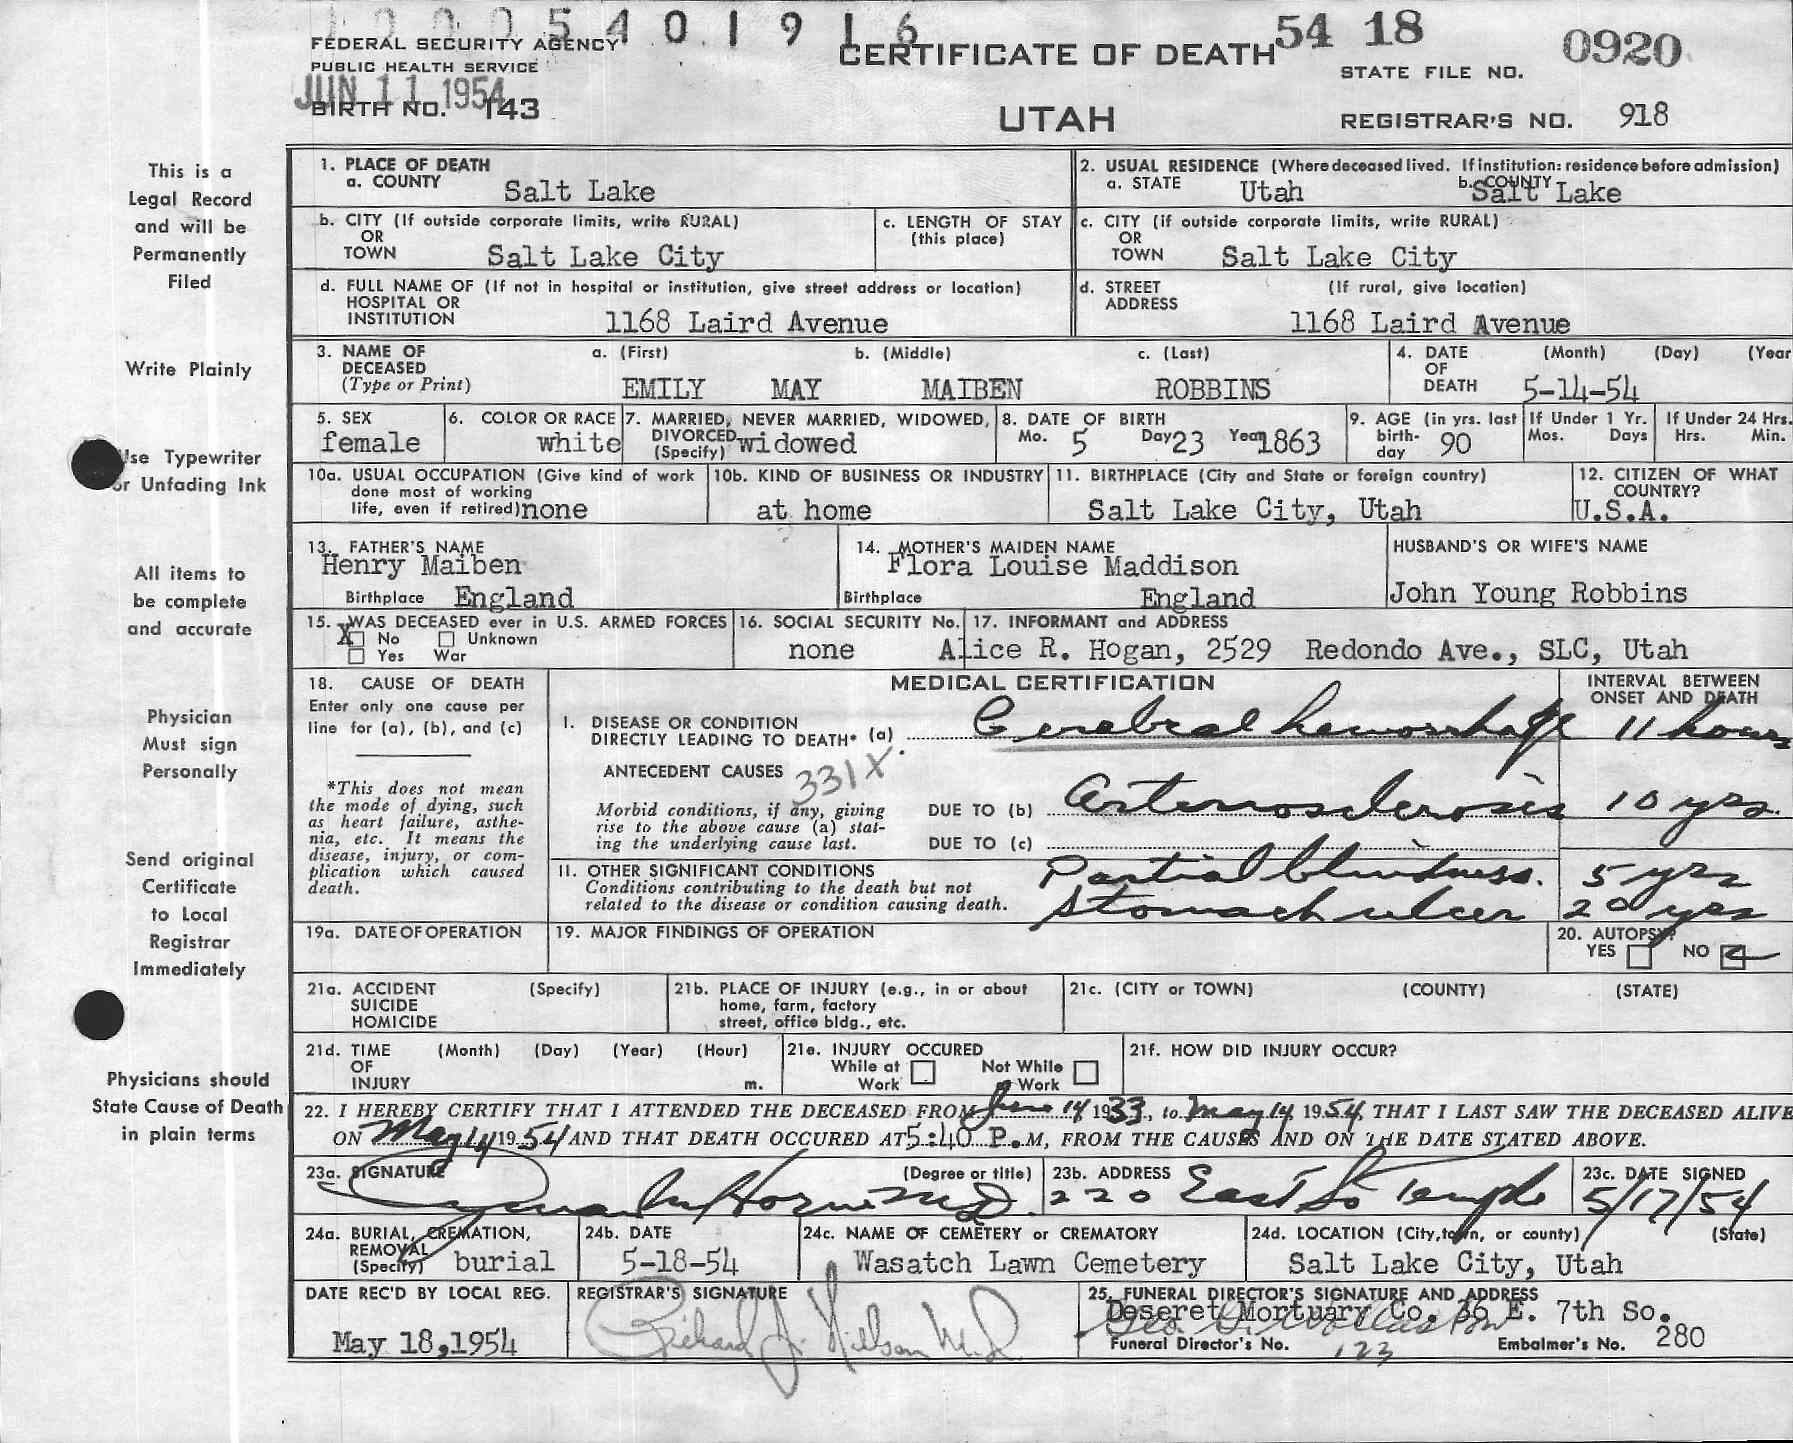 1 0 0 0 5 4 0 1 9 1 6
FEDERAL SECURITY AGENCY
PUBLIC HEALTH SERVICE
JUN 11 1954
BIRTH NO. 143
CERTIFICATE OF DEATH
UTAH
54 18 0920
STATE FILE NO.
REGISTRAR'S NO. 918
This is a
Legal Record
and will be
Permanently
Filed
Write Plainly
Use Typewriter
or Unfading Ink
All items to
be complete
and accurate
Physician
Must sign
Personally
Send original
Certificate
to Local
Registrar
Immediately
Physicians should
State Cause of Death
in plain terms
1. PLACE OF DEATH
a. COUNTY Salt Lake
2. USUAL RESIDENCE (Where deceased lived. If institution: residence before admission)
a. STATE Utah b. COUNTY Salt Lake
b. CITY (If outside corporate limits, write RURAL)
OR
TOWN Salt Lake City
c. LENGTH OF STAY
(this place)
c. CITY (if outside corporate limits, write RURAL)
OR
TOWN Salt Lake City
d. FULL NAME OF (If not in hospital or institution, give street address or location)
HOSPITAL OR
INSTITUTION 1168 Laird Avenue
d. STREET (If rural, give location)
ADDRESS
1168 Laird Avenue
3. NAME OF a. (First) b. (Middle) c. (Last)
DECEASED
(Type or Print) EMILY MAY MAIBEN ROBBINS
4. DATE (Month) (Day) (Year
OF
DEATH 5-14-54
5. SEX
female
6. COLOR OR RACE
white
7. MARRIED, NEVER MARRIED, WIDOWED,
DIVORCED
(Specify) widowed
8. DATE OF BIRTH
Mo. 5 Day 23 Year 1863
9. AGE (in yrs. last
birth-
day 90
If Under 1 Yr.
Mos. Days
If Under 24 Hrs.
Hrs. Min.
10a. USUAL OCCUPATION (Give kind of work
done most of working
life, even if retired) none
10b. KIND OF BUSINESS OR INDUSTRY
at home
11. BIRTHPLACE (City and State or foreign country)
Salt Lake City, Utah
12. CITIZEN OF WHAT
COUNTRY?
U.S.A.
13. FATHER'S NAME
Henry Maiben
Birthplace England
14. MOTHER'S MAIDEN NAME
Flora Louise Maddison
Birthplace England
HUSBAND'S OR WIFE'S NAME
John Young Robbins
15. WAS DECEASED ever in U.S. ARMED FORCES
X No Unknown
Yes War
16. SOCIAL SECURITY No.
none
17. INFORMANT and ADDRESS
Alice R. Hogan, 2529 Redondo Ave., SLC, Utah
18. CAUSE OF DEATH
Enter only one cause per
line for (a), (b), and (c)
*This does not mean
the mode of dying, such
as heart failure, asthe-
nia, etc. It means the
disease, injury, or com-
plication which caused
death.
MEDICAL CERTIFICATION
INTERVAL BETWEEN
ONSET AND DEATH
I. DISEASE OR CONDITION
DIRECTLY LEADING TO DEATH* (a) Cerebral hemorrhage 11 hours
ANTECEDENT CAUSES 331X
Morbid conditions, if any, giving
rise to the above cause (a) stat-
ing the underlying cause last.
DUE TO (b) Arteriosclerosis 10 yrs.
DUE TO (c)
II. OTHER SIGNIFICANT CONDITIONS
Conditions contributing to the death but not
related to the disease or condition causing death.
Partial blindness. 5 yrs
Stomach ulcer 20 yrs
19a. DATE OF OPERATION
19. MAJOR FINDINGS OF OPERATION
20. AUTOPSY?
YES NO
21a. ACCIDENT (Specify)
SUICIDE
HOMICIDE
21b. PLACE OF INJURY (e.g., in or about
home, farm, factory
street, office bldg., etc.
21c. (CITY or TOWN) (COUNTY) (STATE)
21d. TIME (Month) (Day) (Year) (Hour)
OF
INJURY m.
21e. INJURY OCCURED
While at Not While
Work Work
21f. HOW DID INJURY OCCUR?
22. I HEREBY CERTIFY THAT I ATTENDED THE DECEASED FROM June 14 1933, to May 14, 1954, THAT I LAST SAW THE DECEASED ALIVE
ON May 14 1954 AND THAT DEATH OCCURED AT 5:40 P.M, FROM THE CAUSES AND ON THE DATE STATED ABOVE.
23a. SIGNATURE (Degree or title)
Horne M.D.
23b. ADDRESS
220 East So Temple
23c. DATE SIGNED
5/17/54
24a. BURIAL, CREMATION,
REMOVAL
(Specify) burial
24b. DATE
5-18-54
24c. NAME OF CEMETERY or CREMATORY
Wasatch Lawn Cemetery
24d. LOCATION (City, town, or county) (State)
Salt Lake City, Utah
DATE REC'D BY LOCAL REG.
May 18, 1954
REGISTRAR'S SIGNATURE
Richard J. Nielson M.D.
25. FUNERAL DIRECTOR'S SIGNATURE AND ADDRESS
Deseret Mortuary Co. 36 E. 7th So.
Funeral Director's No. 123 Embalmer's No. 280